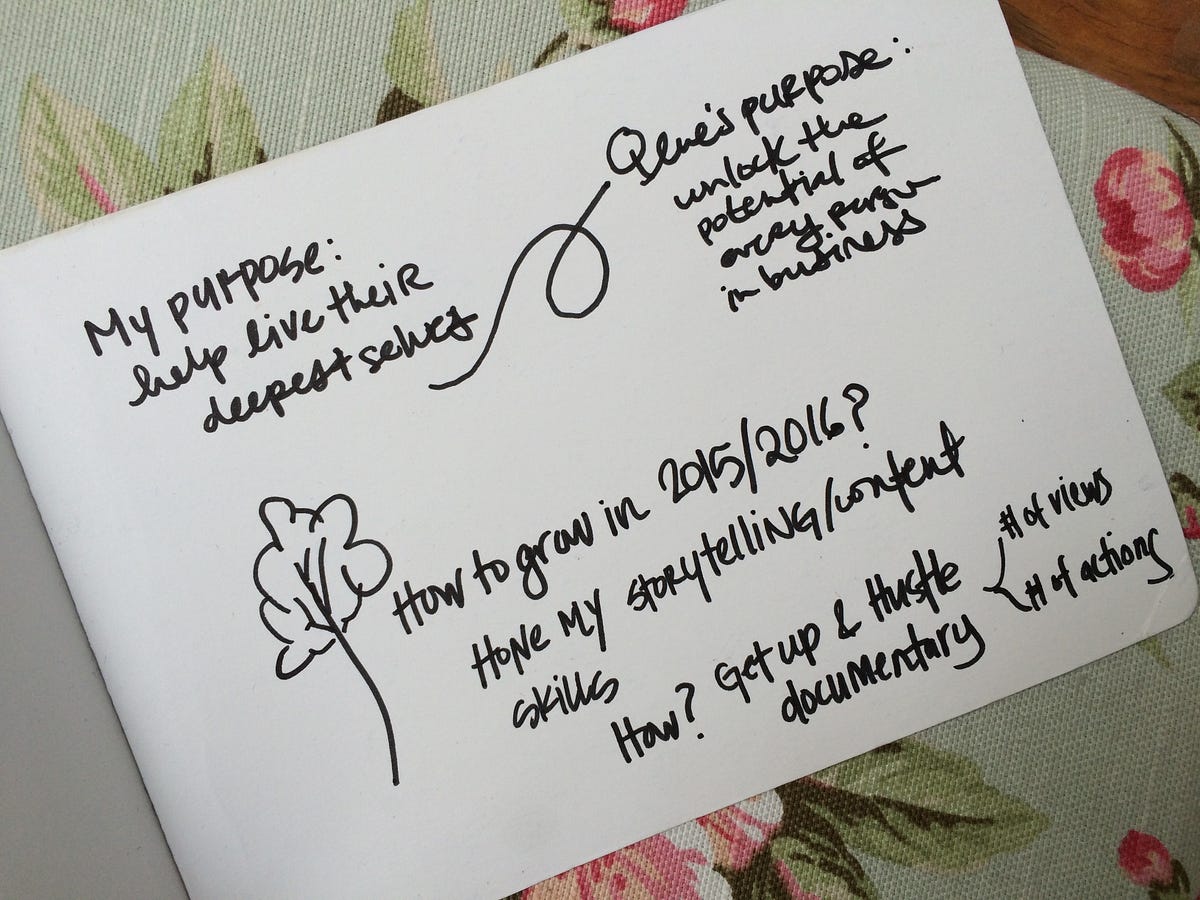 My purpose:
help live their
deepest selves
Qene's purpose:
unlock the
potential of
every person
in business
How to grow in 2015/2016?
Hone my storytelling/content
skills
How? Get up & Hustle
documentary
# of views
# of actions